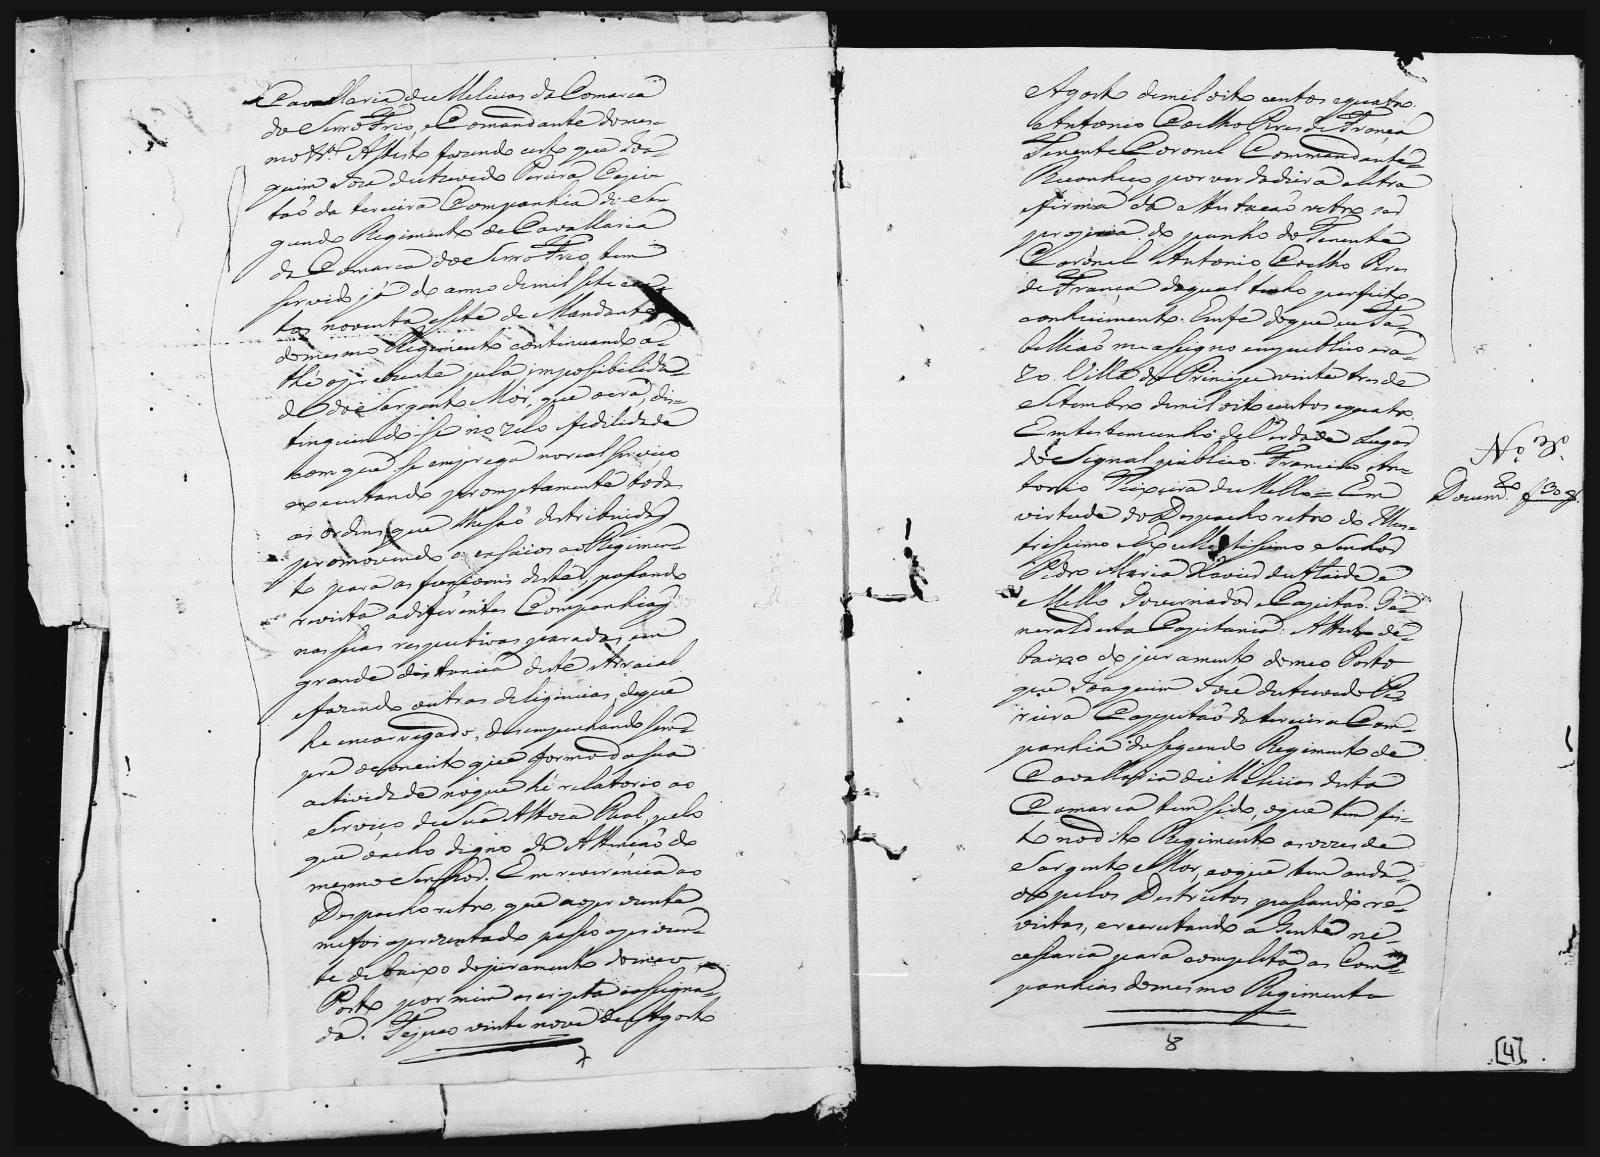 Cavallaria de Melicias da Comarca
do Serro Frio, e Comandante do mes-
mo Attesto fazendo certo que Joa-
quim Joze de Azevedo Pereira, Capi-
taõ da terceira Companhia do Se-
gundo Regimento de Cavallaria
da Comarca do Serro Frio, tem
servido já do anno de mil sete cen-
tos noventa e sete de Mandante
do mesmo Regimento continuando a-
thé o prezente pela impossibilida-
de do Sargento Mór, que o era, dis-
tinguindo-se no zelo e fedilidade
com que se emprega no real serviço
executando promptamente todas
as ordens que lhe saõ destribuidas
promovendo os ensaios ao Regimen-
to para as funçoens deste, passando
revista a diferentes Companhias
nas suas respectivas paradas em
grande distancia deste Arraial
e fazendo outras deligencias, de que
he encarregado, desempenhando sem-
pre o conceito que formo da sua
actividade no que hé relatorio ao
Serviço de Sua Alteza Real, pelo
que o acho digno da Attençaõ do
mesmo Senhor. Em reverencia ao
Despacho retro, que a o prezente
me foi aprezentado passo a prezen-
te debaixo do juramento do meu
Posto por mim escripta e assigna-
da. Tejuco vinte nove de Agosto
7
Agosto de mil oito centos e quatro.
Antonio Coelho Peres de França
Tenente Coronel Commandante=
Reconheço por verdadeira a letra
e firma da Attestaçaõ retro ser
propria do punho do Tenente
Coronel Antonio Coelho Peres
de França do qual tenho perfeito
conhecimento. Em fé do que eu Ta-
belliaõ me assigno em publico e ra-
zo. Villa do Principe vinte tres de
Setembro de mil oito centos e quatro.
Em testemunho de Verdade Lugar
do Signal publico. Francisco An-
tonio Teixeira de Mello= Em
virtude do Despacho retro do Illus-
trissimo e Excellentissimo Senhor
Pedro Maria Xavier de Ataide e
Mello Governador e Capitaõ Ge-
neral desta Capitania: Attesto de-
baixo do juramento do meo Posto
que Joaquim Joze de Azevedo Pe-
reira Cappitaõ da terceira Com-
panhia do segundo Regimento de
Cavallaria de Melicias desta
Comarca tem sido, e que tem fei-
to no dito Regimento as vezes de
Sargento Mor, e o que tem anda-
do pelos Destrictos passando re-
vistas, e recrutando a Gente ne-
cessaria para completar as Com-
panhias do mesmo Regimento
8
Nº 3º
Docum.to f 30 
[4]